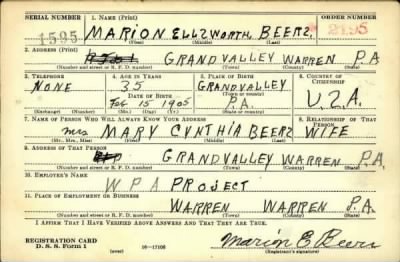 SERIAL NUMBER 1. NAME (Print) ORDER NUMBER
1595 MARION ELLSWORTH BEERZ. 2195
(First) (Middle) (Last)
2. ADDRESS (Print)
GRANDVALLEY WARREN PA
(Number and street or R. F. D. number) (Town) (County) (State)
3. TELEPHONE 4. AGE IN YEARS 5. PLACE OF BIRTH 6. COUNTRY OF CITIZENSHIP
NONE 35 GRANDVALLEY U.S.A.
DATE OF BIRTH (Town or county)
FEB 15 1905 PA.
(Exchange) (Number) (Mo.) (Day) (Yr.) (State or country)
7. NAME OF PERSON WHO WILL ALWAYS KNOW YOUR ADDRESS 8. RELATIONSHIP OF THAT PERSON
Mrs MARY CYNTHIA BEERZ WIFE
(Mr., Mrs., Miss) (First) (Middle) (Last)
9. ADDRESS OF THAT PERSON
GRANDVALLEY WARREN PA.
(Number and street or R. F. D. number) (Town) (County) (State)
10. EMPLOYER'S NAME
WPA PROJECT
11. PLACE OF EMPLOYMENT OR BUSINESS
WARREN WARREN PA.
(Number and street or R. F. D. number) (Town) (County) (State)
I AFFIRM THAT I HAVE VERIFIED ABOVE ANSWERS AND THAT THEY ARE TRUE.
REGISTRATION CARD
D. S. S. Form 1 (over) 16—17105 Marion E. Beers
(Registrant's signature)